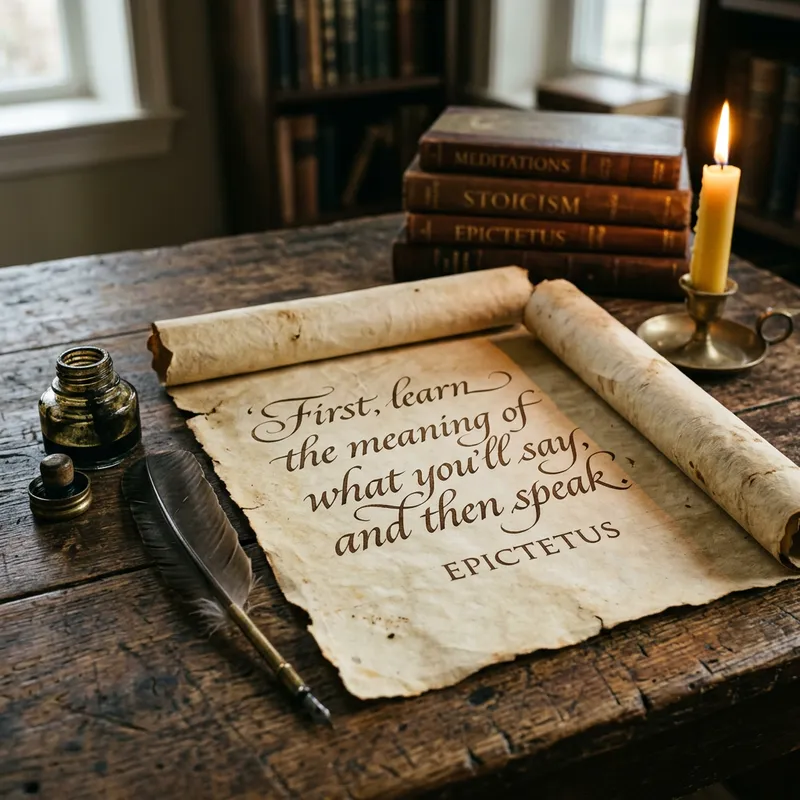 MEDITATIONS
STOICISM
EPICTETUS
‘First, learn
the meaning of
what you'll say,
and then speak.’
EPICTETUS